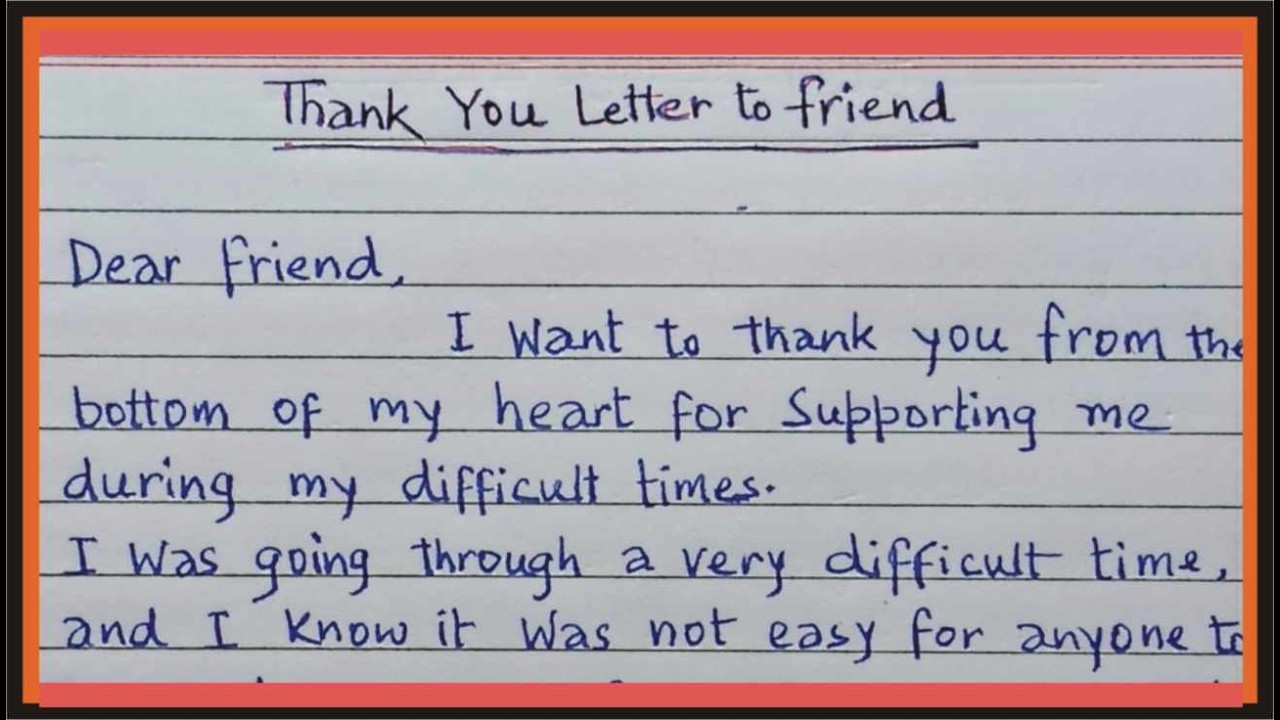 Thank You Letter to friend
Dear friend,
I want to thank you from the
bottom of my heart for supporting me
during my difficult times.
I was going through a very difficult time,
and I know it was not easy for anyone to